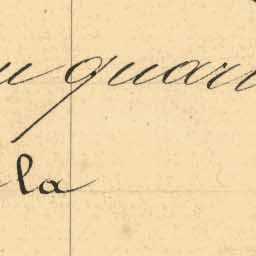 u quar
la